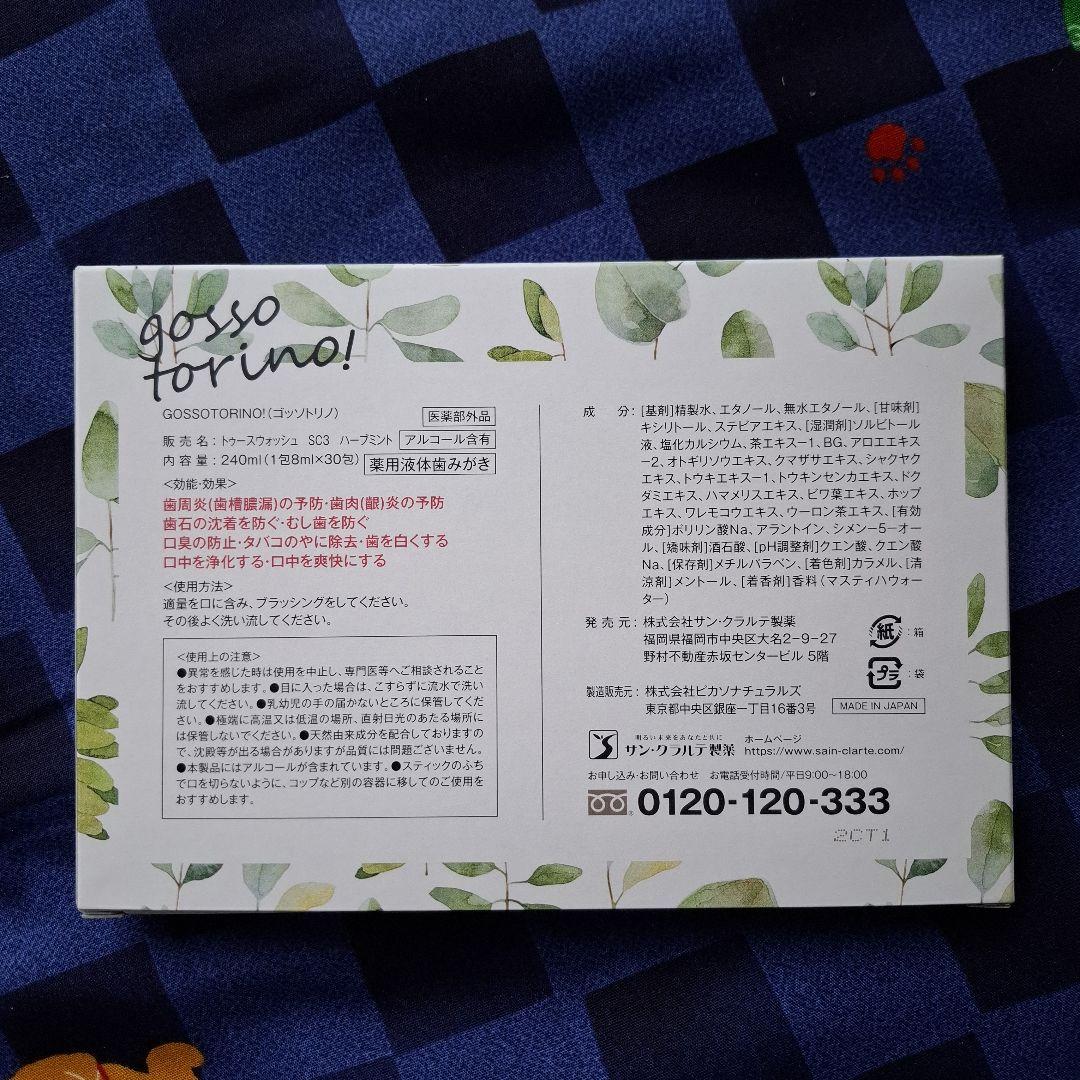 gosso
torino!
GOSSOTORINO!(ゴッソトリノ) 医薬部外品
販 売 名：トゥースウォッシュ SC3 ハーブミント アルコール含有
内 容 量：240ml(1包8ml×30包) 薬用液体歯みがき
<効能・効果>
歯周炎(歯槽膿漏)の予防・歯肉(齦)炎の予防
歯石の沈着を防ぐ・むし歯を防ぐ
口臭の防止・タバコのやに除去・歯を白くする
口中を浄化する・口中を爽快にする
<使用方法>
適量を口に含み、ブラッシングをしてください。
その後よく洗い流してください。
<使用上の注意>
●異常を感じた時は使用を中止し、専門医等へご相談されること
をおすすめします。●目に入った場合は、こすらずに流水で洗い
流してください。●乳幼児の手の届かないところに保管してくだ
さい。●極端に高温又は低温の場所、直射日光のあたる場所に
は保管しないでください。●天然由来成分を配合しておりますの
で、沈殿等が出る場合がありますが品質には問題ございません。
●本製品にはアルコールが含まれています。●スティックのふち
で口を切らないように、コップなど別の容器に移してのご使用を
おすすめします。
成 分：[基剤]精製水、エタノール、無水エタノール、[甘味剤]
キシリトール、ステビアエキス、[湿潤剤]ソルビトール
液、塩化カルシウム、茶エキス-1、BG、アロエエキス
-2、オトギリソウエキス、クマザサエキス、シャクヤク
エキス、トウキエキス-1、トウキンセンカエキス、ドク
ダミエキス、ハマメリスエキス、ビワ葉エキス、ホップ
エキス、ワレモコウエキス、ウーロン茶エキス、[有効
成分]ポリリン酸Na、アラントイン、シメン-5-オー
ル、[矯味剤]酒石酸、[pH調整剤]クエン酸、クエン酸
Na、[保存剤]メチルパラベン、[着色剤]カラメル、[清
涼剤]メントール、[着香剤]香料(マスティハウォー
ター)
発 売 元：株式会社サン・クラルテ製薬
福岡県福岡市中央区大名2-9-27
野村不動産赤坂センタービル 5階
紙：箱
プラ：袋
製造販売元：株式会社ピカソナチュラルズ
東京都中央区銀座一丁目16番3号 MADE IN JAPAN
明るい未来をあなたと共に
サン・クラルテ製薬
ホームページ
https://www.sain-clarte.com/
お申し込み・お問い合わせ お電話受付時間/平日9:00~18:00
0120-120-333
2CT1